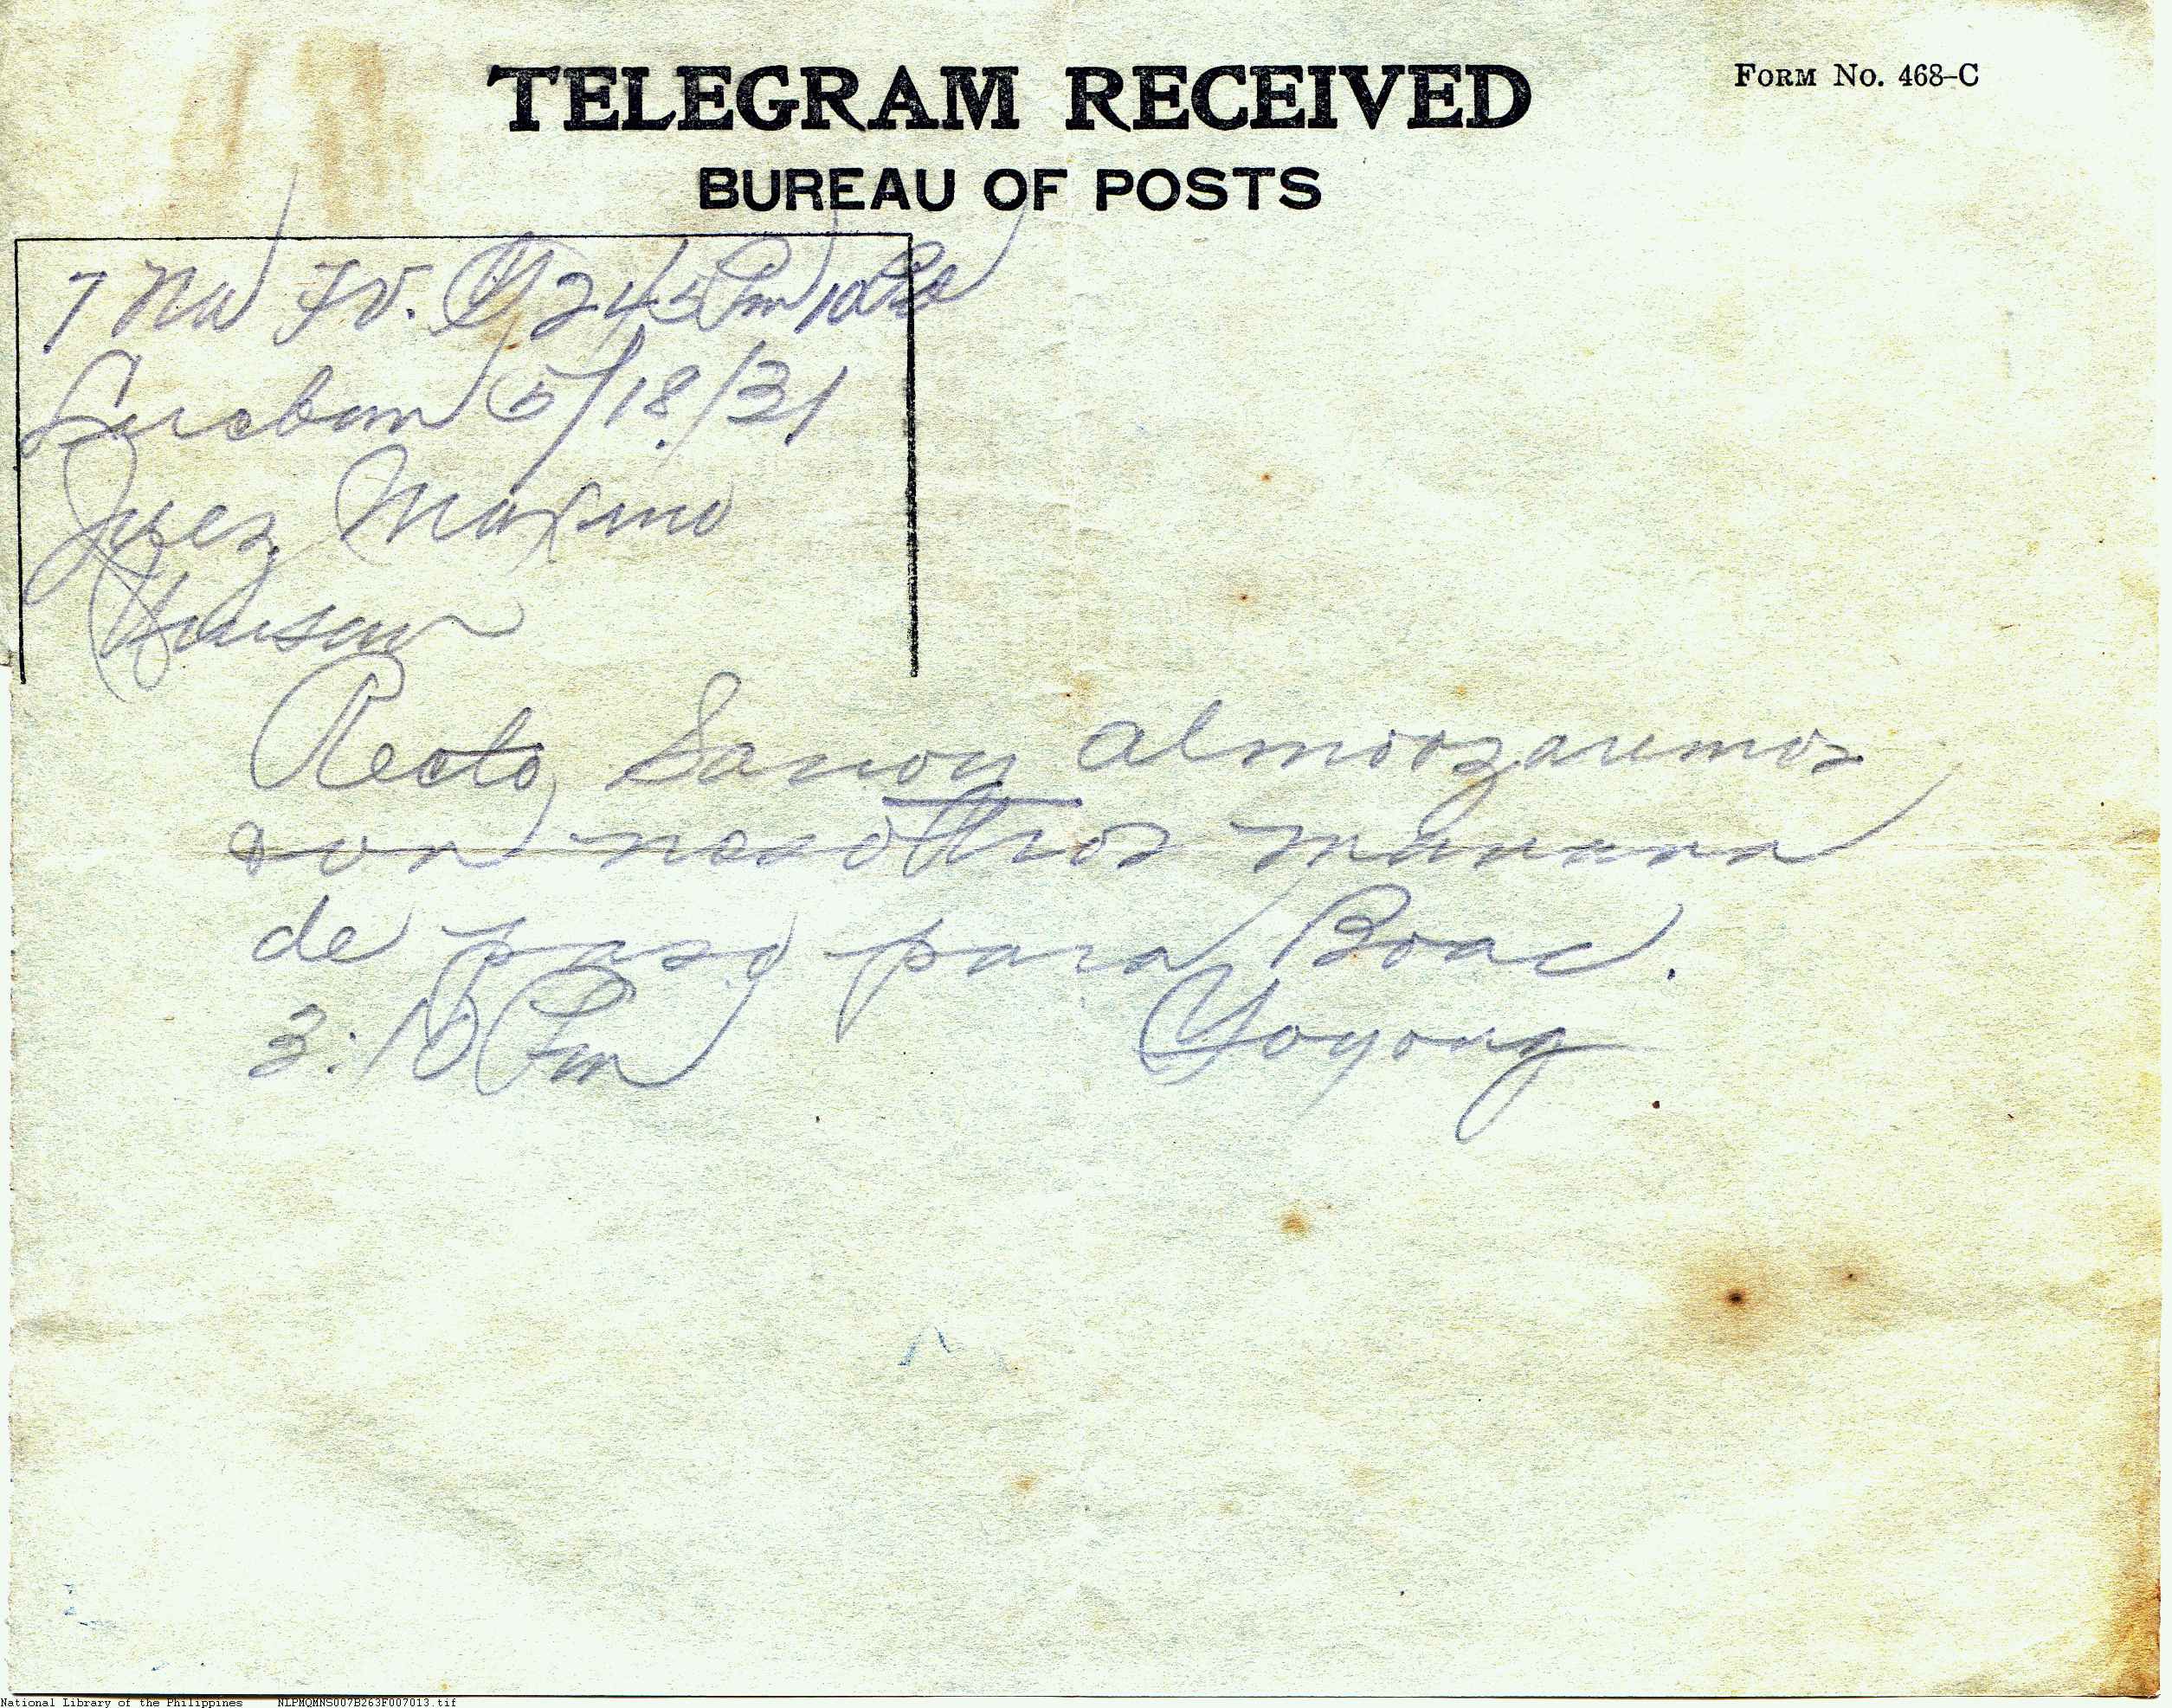 TELEGRAM RECEIVED
FORM No. 468-C
BUREAU OF POSTS
7 Na Fv. 245 Pm 10
Lucban 5/18/31
Juez Maximo
Recto, Sanoy almorzaremos
con nosotros manana
de paso para Boac.
3:10 Pm Yoyong
National Library of the Philippines NLPMQMNS007B263F007013.tif